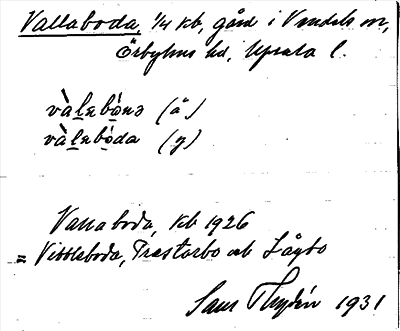 Vallaboda, 1/4 kb, gård i Vendels sn,
Örbyhus hd, Upsala l.
vàlebòna (ä.)
vàlebòda (y)
Vallaboda, kb 1926
= Vittleboda, Prästarbo och Lågbo
Sam Thydén 1931